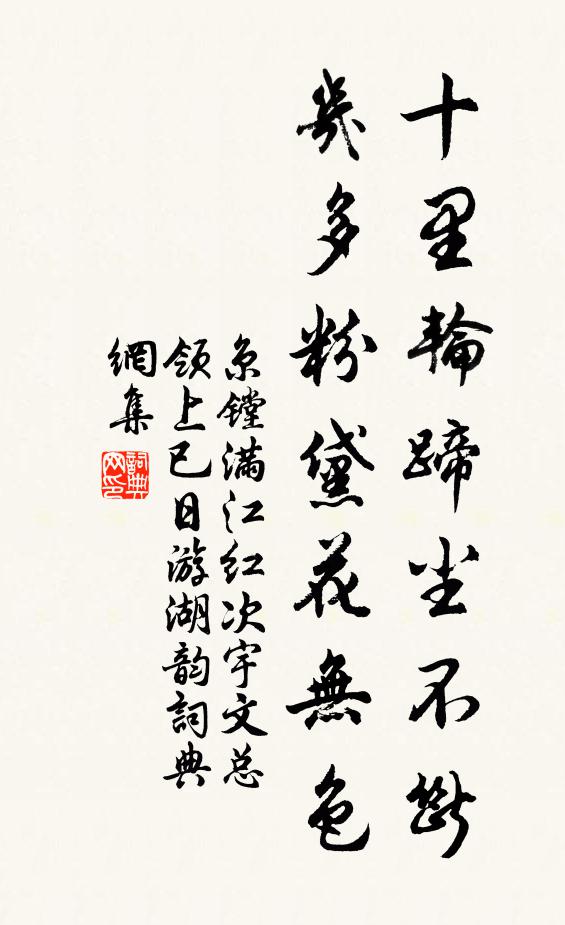 十里輪蹄尘不斷
幾多粉黛花無色
京镗满江红次宇文总
领上巳日游湖韵詞典
網集
詞典网印